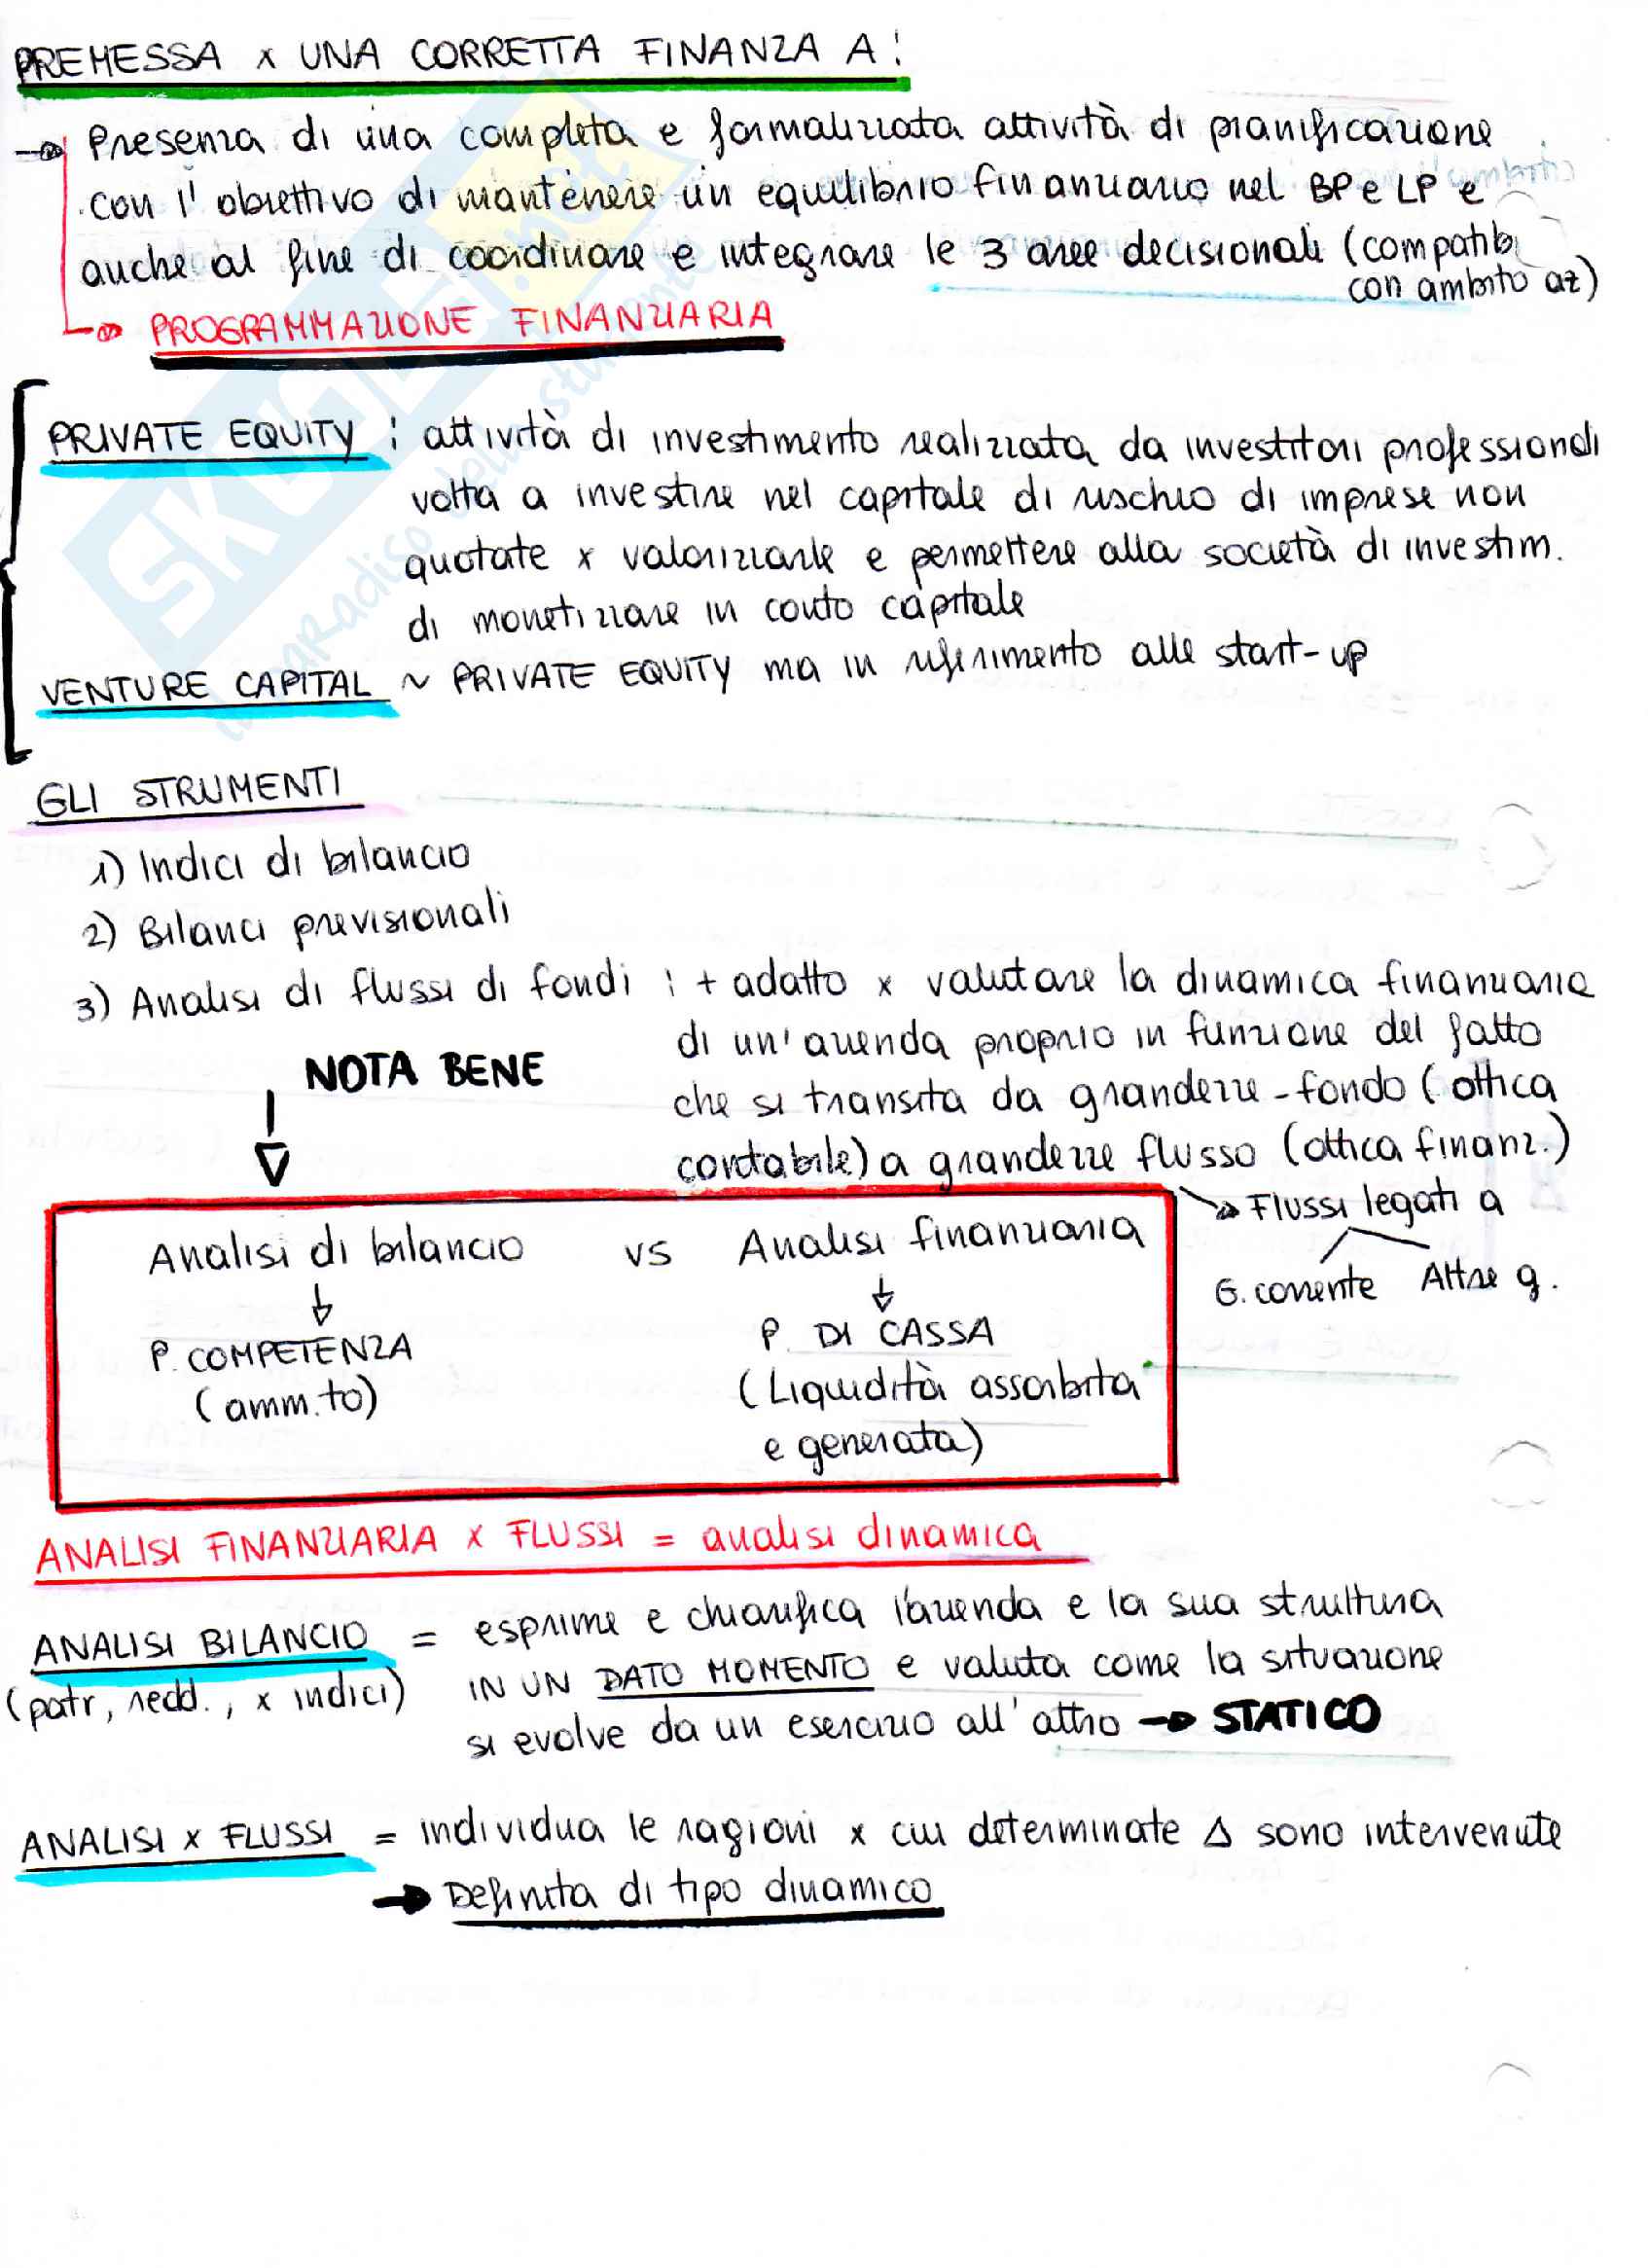 PREMESSA x UNA CORRETTA FINANZA A:
Presenza di una completa e formalizzata attività di pianificazione
con l'obiettivo di mantenere un equilibrio finanziario nel BP e LP e
anche al fine di coordinare e integrare le 3 aree decisionali (compatib
con ambito az)
PROGRAMMAZIONE FINANZIARIA
PRIVATE EQUITY : attività di investimento realizzata da investitori professionali
volta a investire nel capitale di rischio di imprese non
quotate x valorizzarle e permettere alla società di investim.
di monetizzare in conto capitale
VENTURE CAPITAL ~ PRIVATE EQUITY ma in riferimento alle start-up
GLI STRUMENTI
1) Indici di bilancio
2) Bilanci previsionali
3) Analisi di flussi di fondi : + adatto x valutare la dinamica finanziaria
di un'azienda proprio in funzione del fatto
che si transita da grandezze-fondo (ottica
contabile) a grandezze flusso (ottica finanz.)
NOTA BENE
Flussi legati a
G. corrente Altre g.
Analisi di bilancio vs Analisi finanziaria
P. COMPETENZA P. DI CASSA
(amm.to) (Liquidità assorbita
e generata)
ANALISI FINANZIARIA x FLUSSI = analisi dinamica
ANALISI BILANCIO = esprime e chiarifica l'azienda e la sua struttura
(patr, redd., x indici) IN UN DATO MOMENTO e valuta come la situazione
si evolve da un esercizio all'altro → STATICO
ANALISI x FLUSSI = individua le ragioni x cui determinate Δ sono intervenute
→ Definita di tipo dinamico
SKUOLA.net
il paradiso dello studente